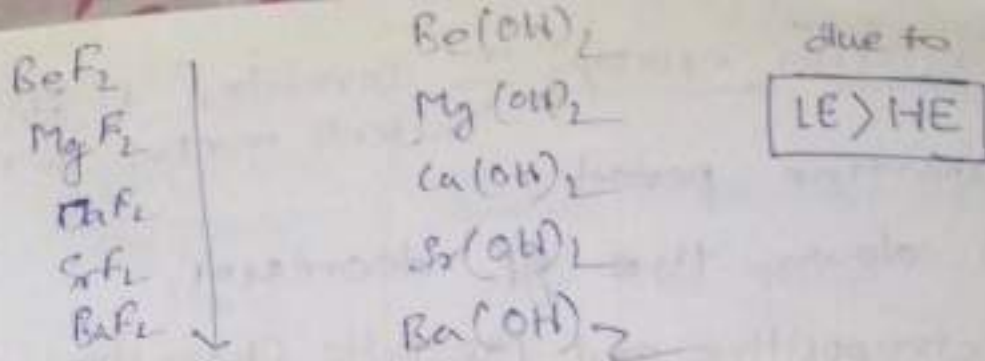 BeF2
MgF2
SrF2
BaF2
Be(OH)2
Mg(OH)2
Ca(OH)2
Sr(OH)2
Ba(OH)2
due to
LE > HE